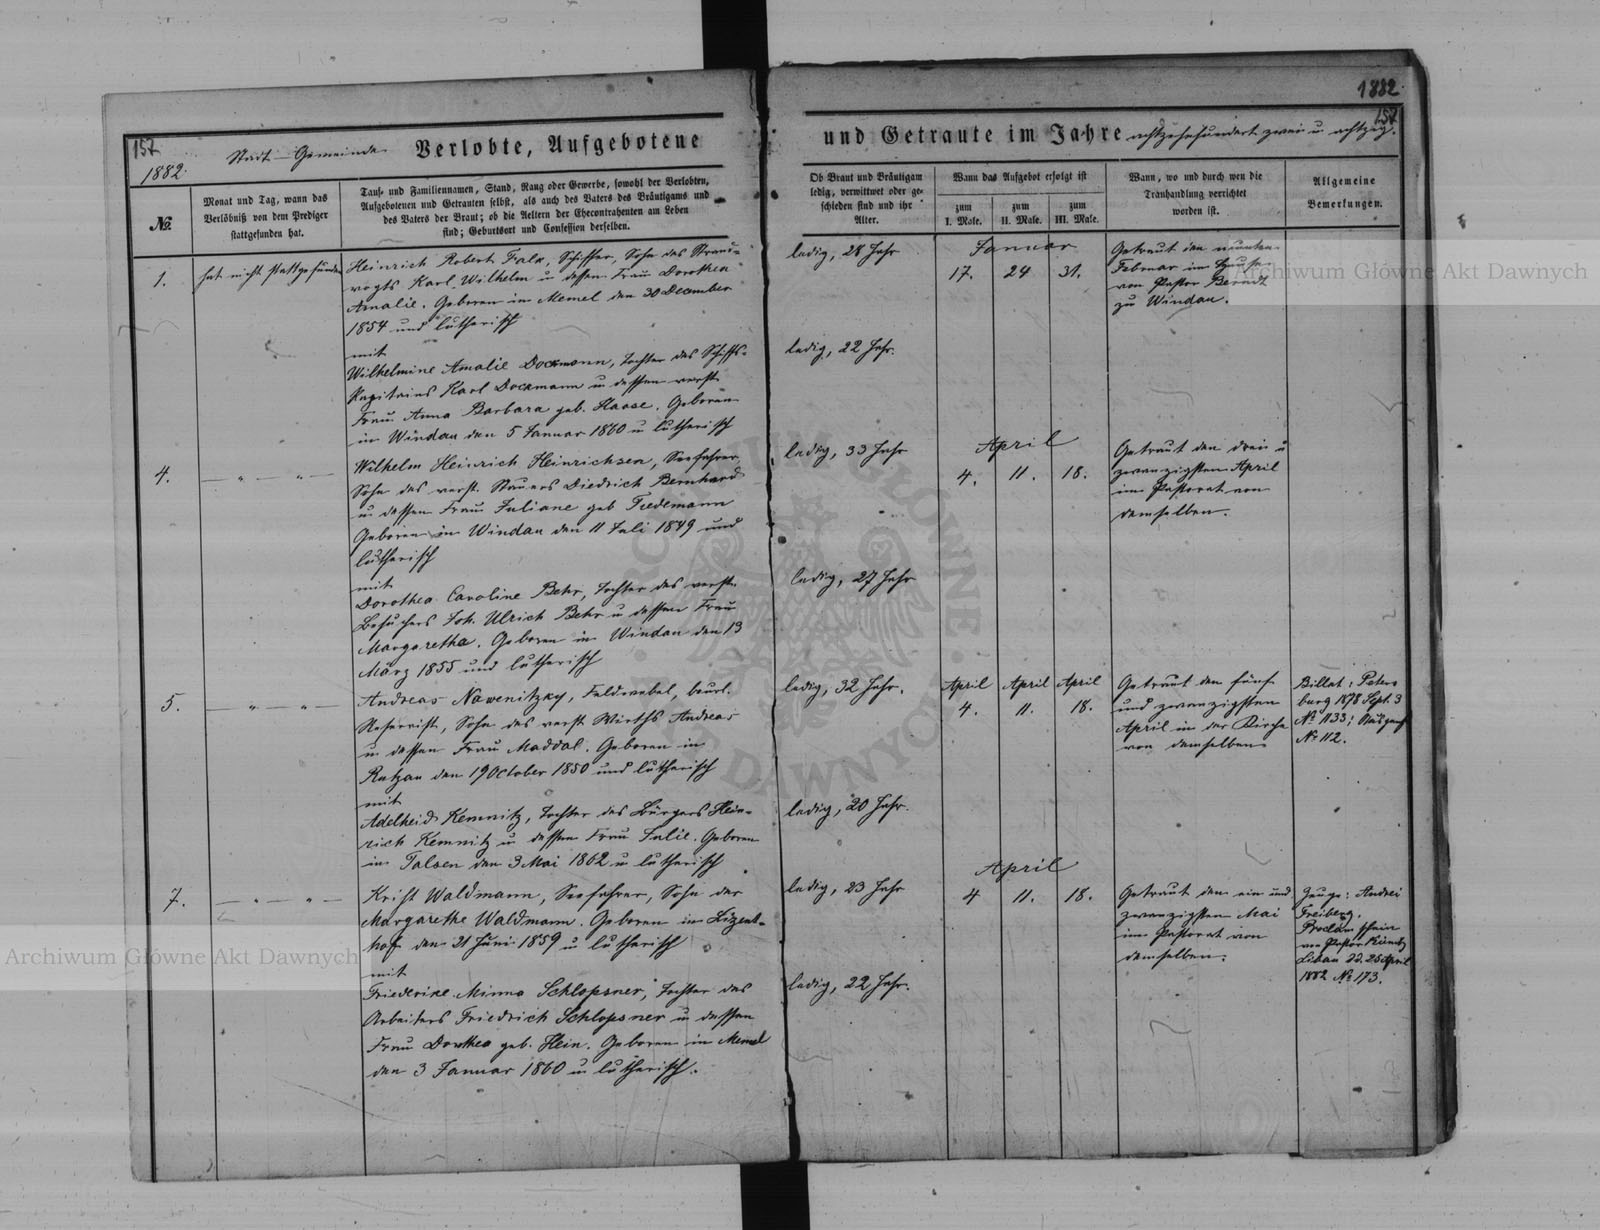 1882.
157
1882.
157
Stadt-Gemeinde Verlobte, Aufgebotene
und Getraute im Jahre achtzehnhundert zwei u achtzig.
№.
Monat und Tag, wann das
Verlöbniß von dem Prediger
stattgefunden hat.
Tauf- und Familiennamen, Stand, Rang oder Gewerbe, sowohl der Verlobten,
Aufgebotenen und Getrauten selbst, als auch des Vaters des Bräutigams und
des Vaters der Braut; ob die Aeltern der Ehecontrahenten am Leben
sind; Geburtsort und Confession derselben.
Ob Braut und Bräutigam
ledig, verwittwet oder ge-
schieden sind und ihr
Alter.
Wann das Aufgebot erfolgt ist
zum
I. Male.
zum
II. Male.
zum
III. Male.
Wann, wo und durch wen die
Trauhandlung verrichtet
worden ist.
Allgemeine
Bemerkungen.
1.
hat nicht stattgefunden
Heinrich Robert Falk, Schiffer, Sohn des Strand-
vogts Karl Wilhelm u dessen Frau Dorothea
Amalie. Geboren in Memel den 30 December
1854 und lutherisch
mit
Wilhelmine Amalie Dockmann, Tochter des Schiffs-
Kapitains Karl Dockmann u dessen verst.
Frau Anna Barbara geb. Haase. Geboren
in Windau den 5 Januar 1860 u lutherisch
ledig, 28 Jahr
ledig, 22 Jahr.
Januar
17. 24 31.
Getraut den neunten
Februar im Hause
von Pastor Berndt
zu Windau.
4.
— „ — „ —
Wilhelm Heinrich Heinrichsen, Seefahrer,
Sohn des verst. Stauers Diedrich Bernhard
u dessen Frau Juliane geb Tiedemann
Geboren in Windau den 11 Juli 1849 und
lutherisch
mit
Dorothea Caroline Behr, Tochter des verst.
Besuchers Joh. Ulrich Behr u dessen Frau
Margaretha. Geboren in Windau den 13
März 1855 und lutherisch
ledig, 33 Jahr
ledig, 27 Jahr
April
4. 11. 18.
Getraut den drei u
zwanzigsten April
im Pastorat von
demselben.
5.
— „ — „ —
Andreas Nawenitzky, Feldwebel, beurl.
Reservist, Sohn des verst Wirths Andreas
u dessen Frau Maddal. Geboren in
Rutzau den 19 October 1850 und lutherisch
mit
Adelheid Kemnitz, Tochter des Bürgers Hein-
rich Kemnitz u dessen Frau Julie. Geboren
in Talsen den 3 Mai 1862 u lutherisch
ledig, 32 Jahr.
ledig, 20 Jahr.
April April April
4. 11. 18.
Getraut den fünf
und zwanzigsten
April in der Kirche
von demselben
Billet: Peters
burg 1878 Sept. 3
№ 1133;
№ 112.
7.
— „ — „ —
Krist Waldmann, Seefahrer, Sohn der
Margarethe Waldmann. Geboren in
hof den 21 Juni 1859 u lutherisch
mit
Friederike Minna Schlopsner, Tochter des
Arbeiters Friedrich Schlopsner u dessen
Frau Dorothea geb. Hein. Geboren in Memel
den 3 Januar 1860 u lutherisch.
ledig, 23 Jahr
ledig, 22 Jahr.
April
4 11. 18.
Getraut den ein und
zwanzigsten Mai
im Pastorat von
demselben.
Zeuge: Andrei
Freiberg.
Proclam schein
von Pastor
Libau d.d. 25 April
1882 № 173.
Archiwum Główne Akt Dawnych
Archiwum Główne Akt Dawnych
ARCHIWUM GŁÓWNE AKT DAWNYCH